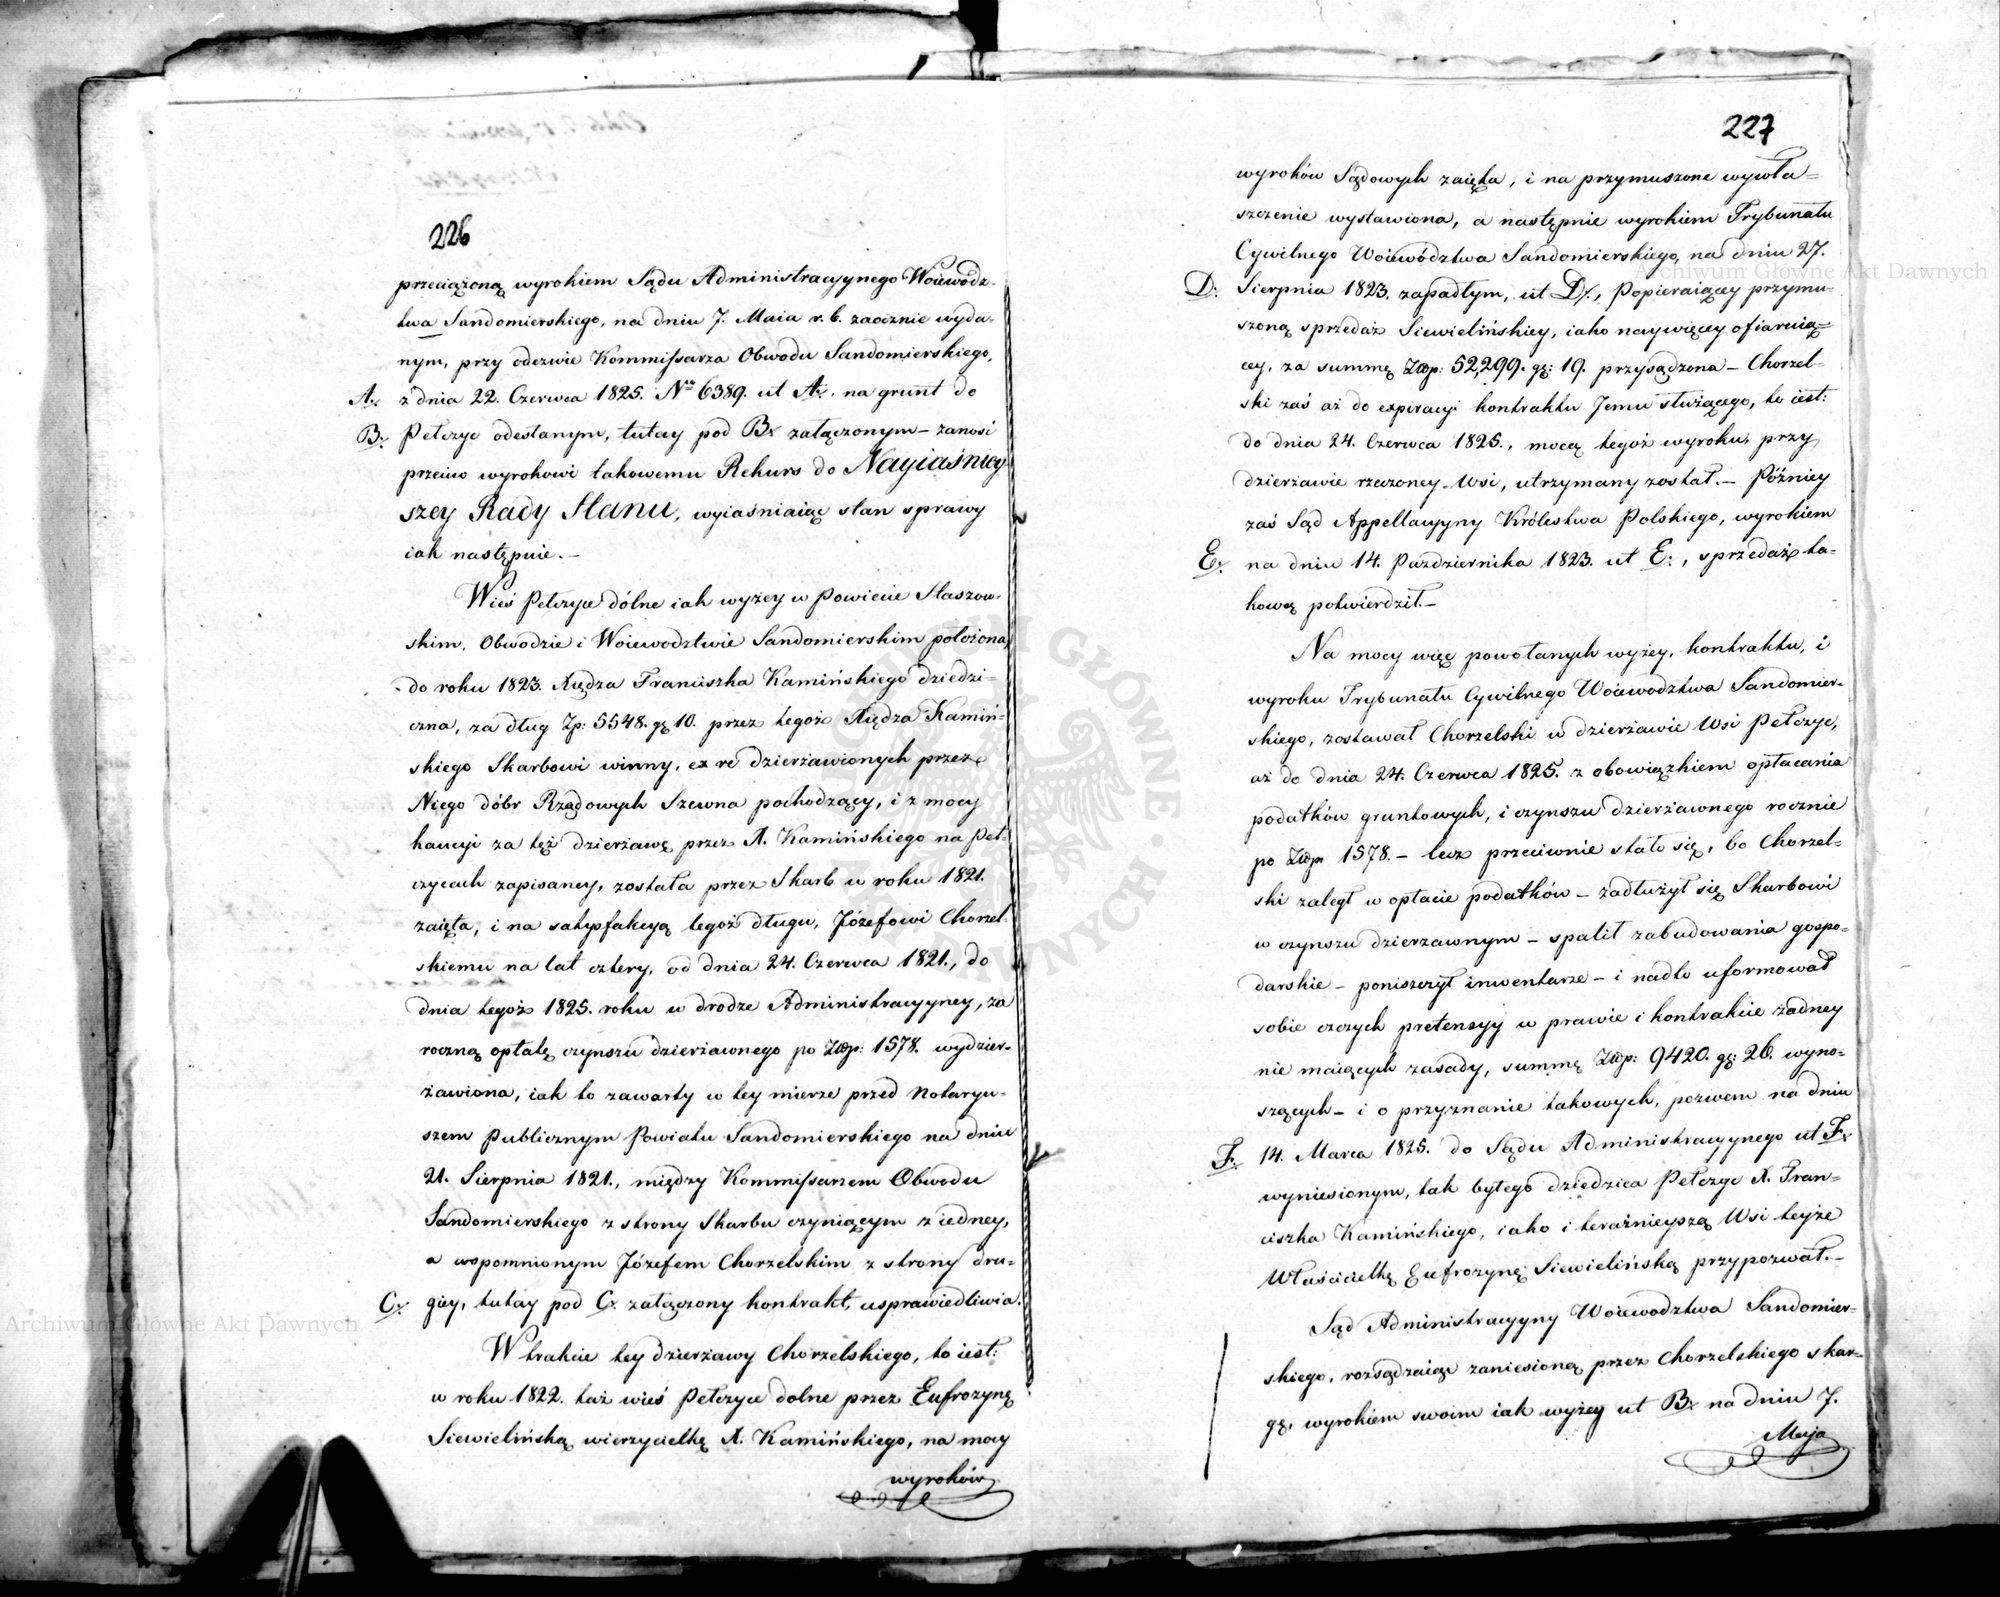 226
przeciążoną wyrokiem Sądu Administracyynego Woiewódz-
twa Sandomierskiego, na dniu 7. Maia r. b. zaocznie wyda-
nym, przy odezwie Kommissarza Obwodu Sandomierskiego,
A. z dnia 22. Czerwca 1825. Nro 6389. ut A. na grunt do
B. Pełczyc odesłanym, tutay pod B. załączonym – zanosi
przeciw wyrokowi takowemu Rekurs do Nayiaśniey-
szey Rady Stanu, wyiaśniaiąc stan sprawy
iak następuie. –
Wieś Pełczyce dólne iak wyżey w Powiecie Staszow-
skim, Obwodzie i Woiewodztwie Sandomierskim położona,
do roku 1823. Xiędza Franciszka Kamińskiego dziedzi-
czna, za dług Zp: 5548. gr 10. przez tegoż Xiędza Kamiń-
skiego Skarbowi winny, ex re dzierżawionych przez
Niego dóbr Rządowych Szewna pochodzący, i z mocy
kaucyi za też dzierżawę przez X. Kamińskiego na Peł-
czycach zapisaney, została przez Skarb w roku 1821.
zaięta, i na satysfakcyą tegoż długu, Józefowi Chorzel-
skiemu na lat cztery, od dnia 24. Czerwca 1821., do
dnia tegoż 1825. roku w drodze Administracyyney, za
roczną opłatę czynszu dzierżawnego po Złp: 1578. wydzier-
żawiona, iak to zawarty w tey mierze przed Notaryu-
szem Publicznym Powiatu Sandomierskiego na dniu
21. Sierpnia 1821., między Kommissarzem Obwodu
Sandomierskiego z strony Skarbu czyniącym z iedney,
a wspomnionym Józefem Chorzelskim z strony dru-
C. giey, tutay pod C. załączony kontrakt, usprawiedliwia.
W trakcie tey dzierżawy Chorzelskiego, to iest:
w roku 1822. taż wieś Pełczyce dolne przez Eufrozynę
Siewielińską wierzycielkę X. Kamińskiego, na mocy
wyroków
227
wyroków Sądowych zaięta, i na przymuszone wywła-
szczenie wystawiona, a następnie wyrokiem Trybunału
Cywilnego Woiewództwa Sandomierskiego, na dniu 27.
D. Sierpnia 1823. zapadłym, ut D., Popieraiącey przymu-
szoną sprzedaż Siewielińskiey, iako naywięcey ofiaruią-
cey, za summę Złp: 52,299. gr: 19. przysądzona – Chorzel-
ski zaś aż do expiracyi kontraktu Jemu służącego, to iest:
do dnia 24. Czerwca 1825., mocą tegoż wyroku, przy
dzierżawie rzeczoney Wsi, utrzymany został. – Późniey
zaś Sąd Appellacyyny Królestwa Polskiego, wyrokiem
E. na dniu 14. Października 1823. ut E., sprzedaż ta-
kową potwierdził. –
Na mocy więc powołanych wyżey, kontraktu, i
wyroku Trybunału Cywilnego Woiewodztwa Sandomier-
skiego, zostawał Chorzelski w dzierżawie Wsi Pełczyc,
aż do dnia 24. Czerwca 1825. z obowiązkiem opłacania
podatków gruntowych, i czynszu dzierżawnego rocznie
po Złp: 1578. – lecz przeciwnie stało się, bo Chorzel-
ski zaległ w opłacie podatków – zadłużył się Skarbowi
w czynszu dzierżawnym – spalił zabudowania gospo-
darskie – poniszczył inwentarze – i nadto uformował
sobie czczych pretensyy w prawie i kontrakcie żadney
nie maiących zasady, summę Złp: 9420. gr: 26. wyno-
szących – i o przyznanie takowych, pozwem na dniu
F. 14. Marca 1825. do Sądu Administracyynego ut F.
wyniesionym, tak byłego dziedzica Pełczyc X. Fran-
ciszka Kamińskiego, iako i teraźnieyszą Wsi teyże
Właścicielkę Eufrozynę Siewielińską przypozwał. –
Sąd Administracyyny Woiewodztwa Sandomier-
skiego, rozsądzaiąc zaniesioną przez Chorzelskiego skar-
gę, wyrokiem swoim iak wyżey ut B. na dniu 7.
Maja
Archiwum Główne Akt Dawnych
Archiwum Główne Akt Dawnych